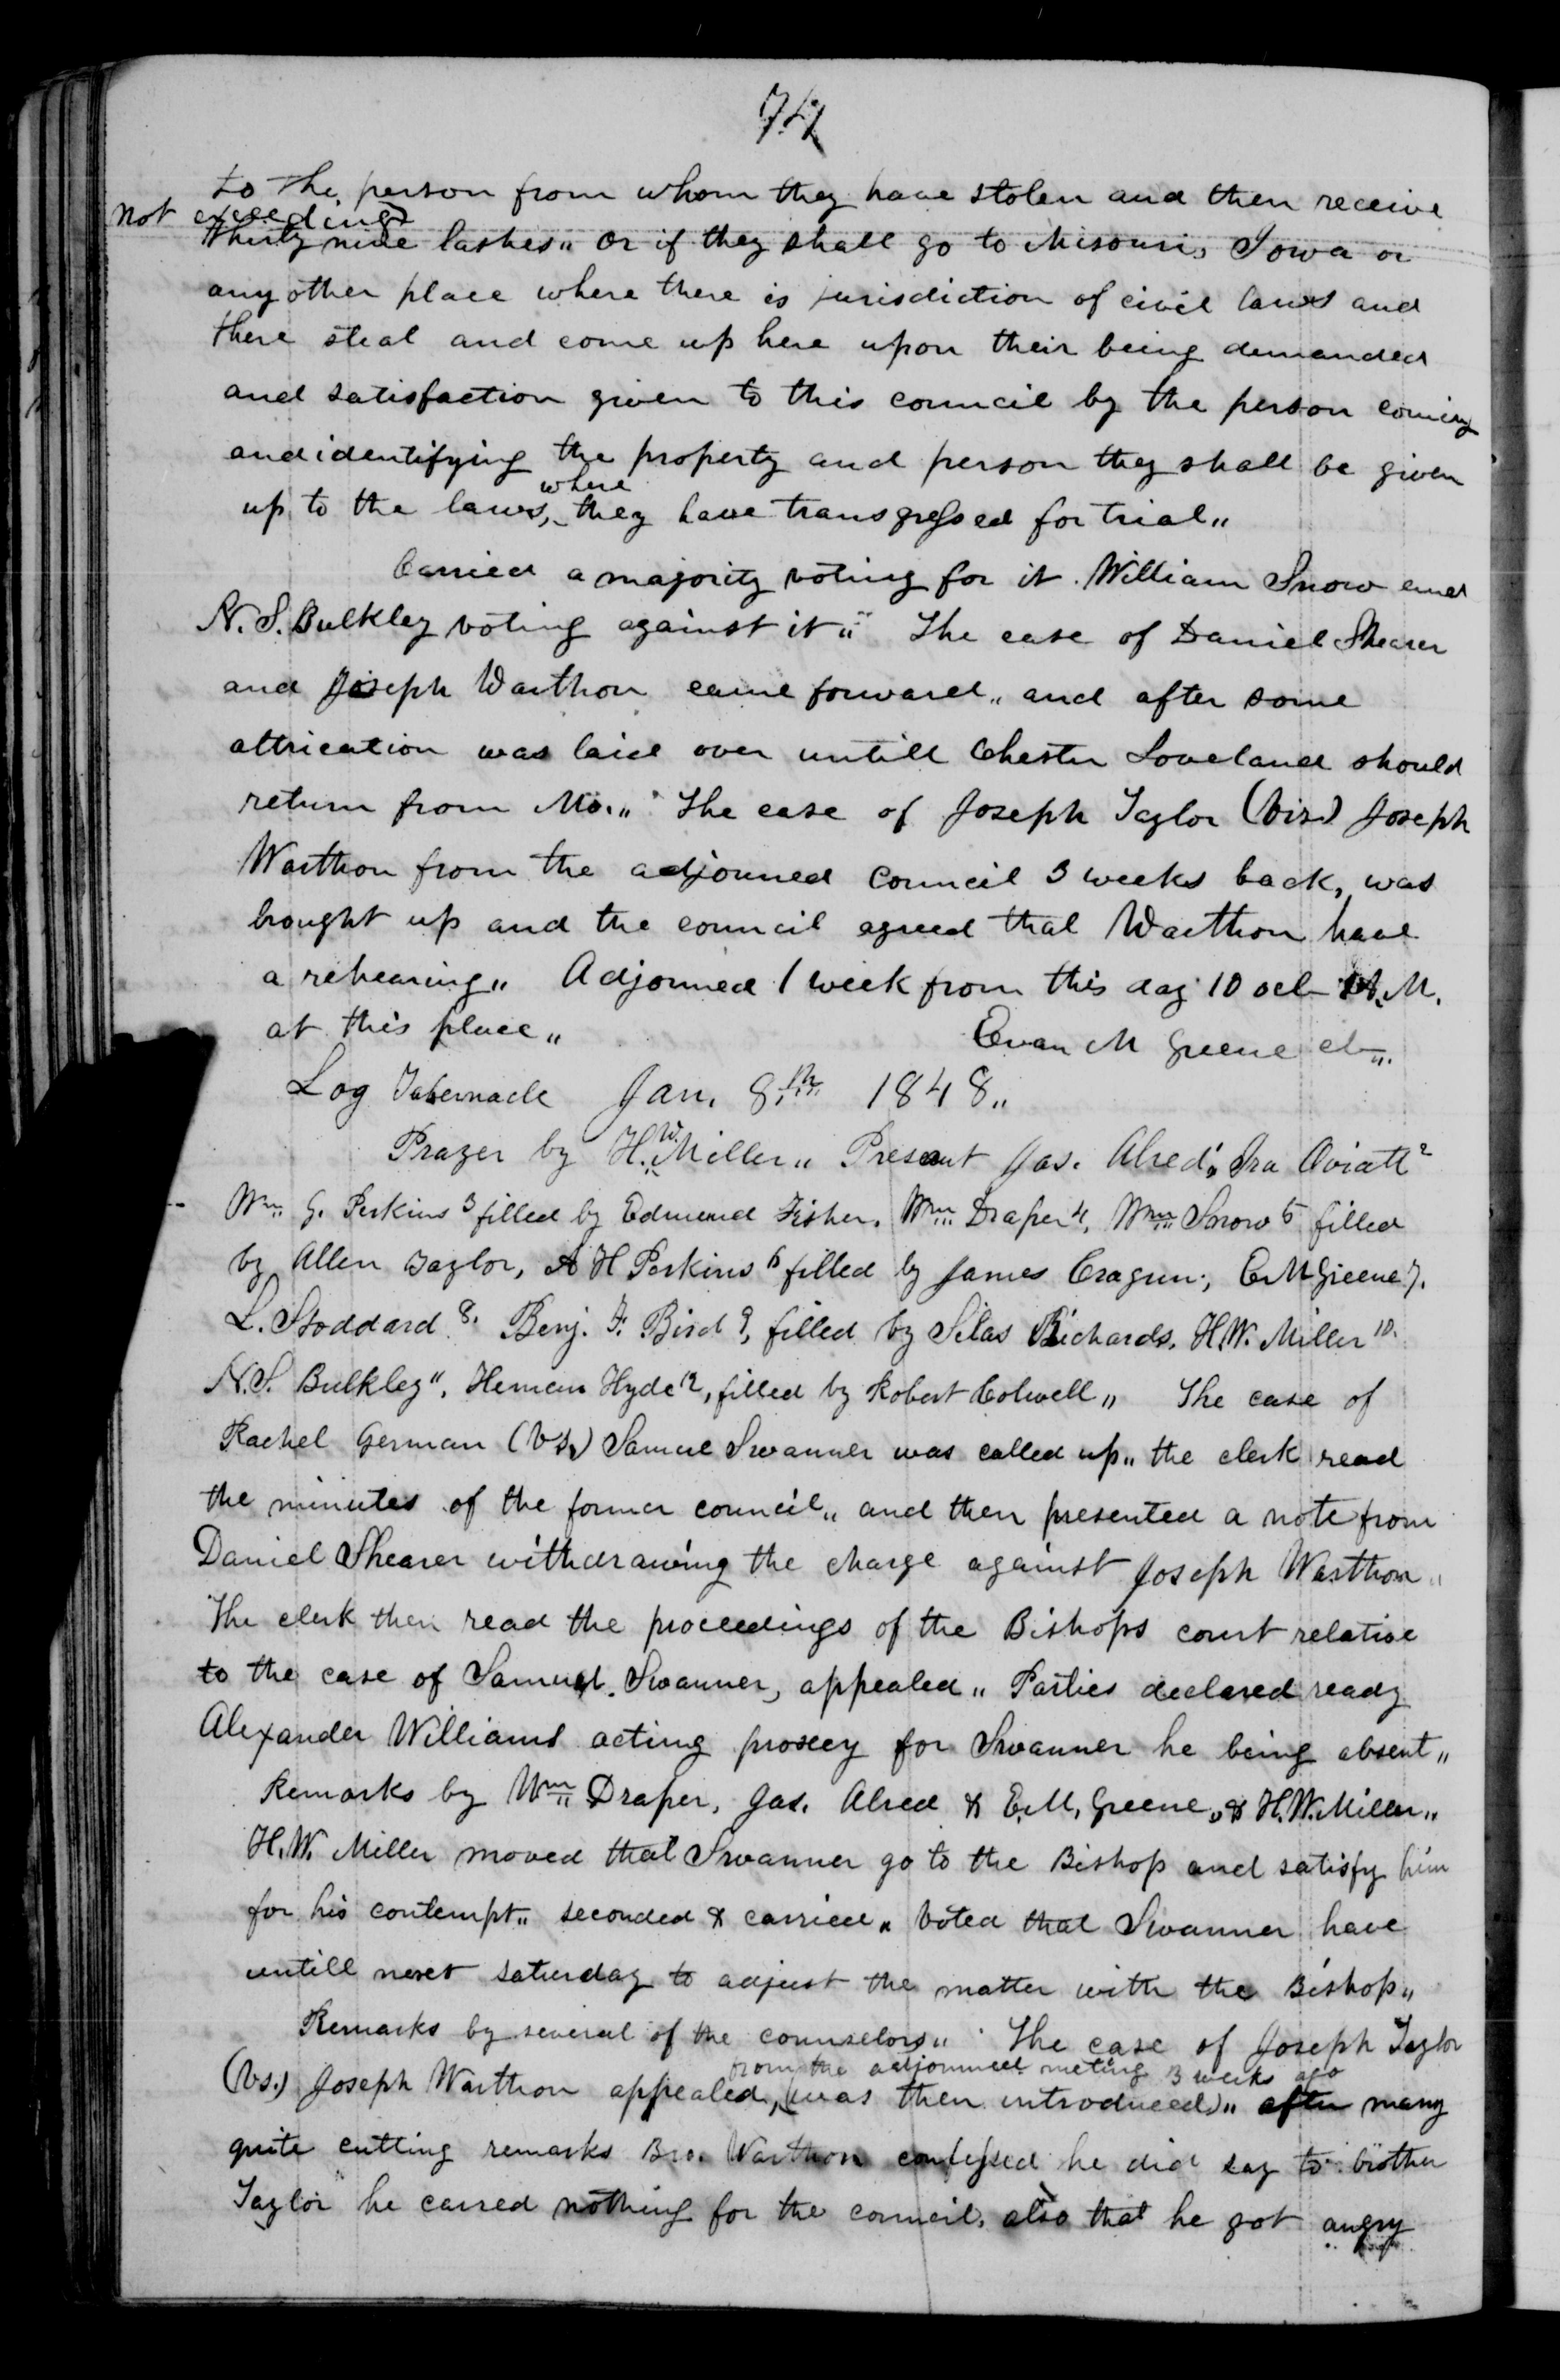 74
to the person from whom they have stolen and then receive
not exceeding
thirty nine lashes" Or if they shall go to Misouri, Iowa or
any other place where there is jurisdiction of civil laws and
there steal and come up here upon their being demanded
and satisfaction given to this council by the person coming
and identifying the property and person they shall be given
up to the laws, where they have transgressed for trial"
Carried a majority voting for it. William Snow and
N. S. Bulkley voting against it" The case of Daniel Shearer
and Joseph Warthon came forward" and after some
altrication was laid over untill Chester Loveland should
return from Mo." The case of Joseph Taylor (vs.) Joseph
Warthon from the adjourned council 3 weeks back, was
brought up and the council agreed that Warthon have
a rehearing" Adjorned 1 week from this day 10 ocl- A.M.
at this place" Evan M Greene cl-"
Log Tabernacle Jan. 8th 1848"
Prayer by H. W. Miller" Present Jas. Alred 1, Ira Oviatt 2
Wm G. Perkins 3 filled by Edmund Fisher. Wm Draper 4, Wm Snow 5 filled
by Allen Taylor, A H Perkins 6 filled by James Cragun; E M Greene 7.
L. Stoddard 8. Benj. F. Bird 9, filled by Silas Richards, H.W. Miller 10.
N.S. Bulkley 11, Heman Hyde 12, filled by Robert Colwell" The case of
Rachel German (vs.) Samuel Swanner was called up" the clerk read
the minutes of the former council" and then presented a note from
Daniel Shearer withdrawing the charge against Joseph Warthon"
The clerk then read the proceedings of the Bishops court relative
to the case of Samuel Swanner, appealed" Parties declared ready
Alexander Williams acting proxey for Swanner he being absent"
Remarks by Wm Draper, Jas. Alred & E.M. Greene, & H.W. Miller"
H.W. Miller moved that Swanner go to the Bishop and satisfy him
for his contempt" seconded & carried" Voted that Swanner have
untill next saturday to adjust the matter with the Bishop"
Remarks by several of the counselors" The case of Joseph Taylor
from the adjourned meting 3 weeks ago
(vs.) Joseph Warthon appealed, (was then introduced)" after many
quite cutting remarks Bro. Warthon confessed he did say to brother
Taylor he carred nothing for the council, also that he got angry